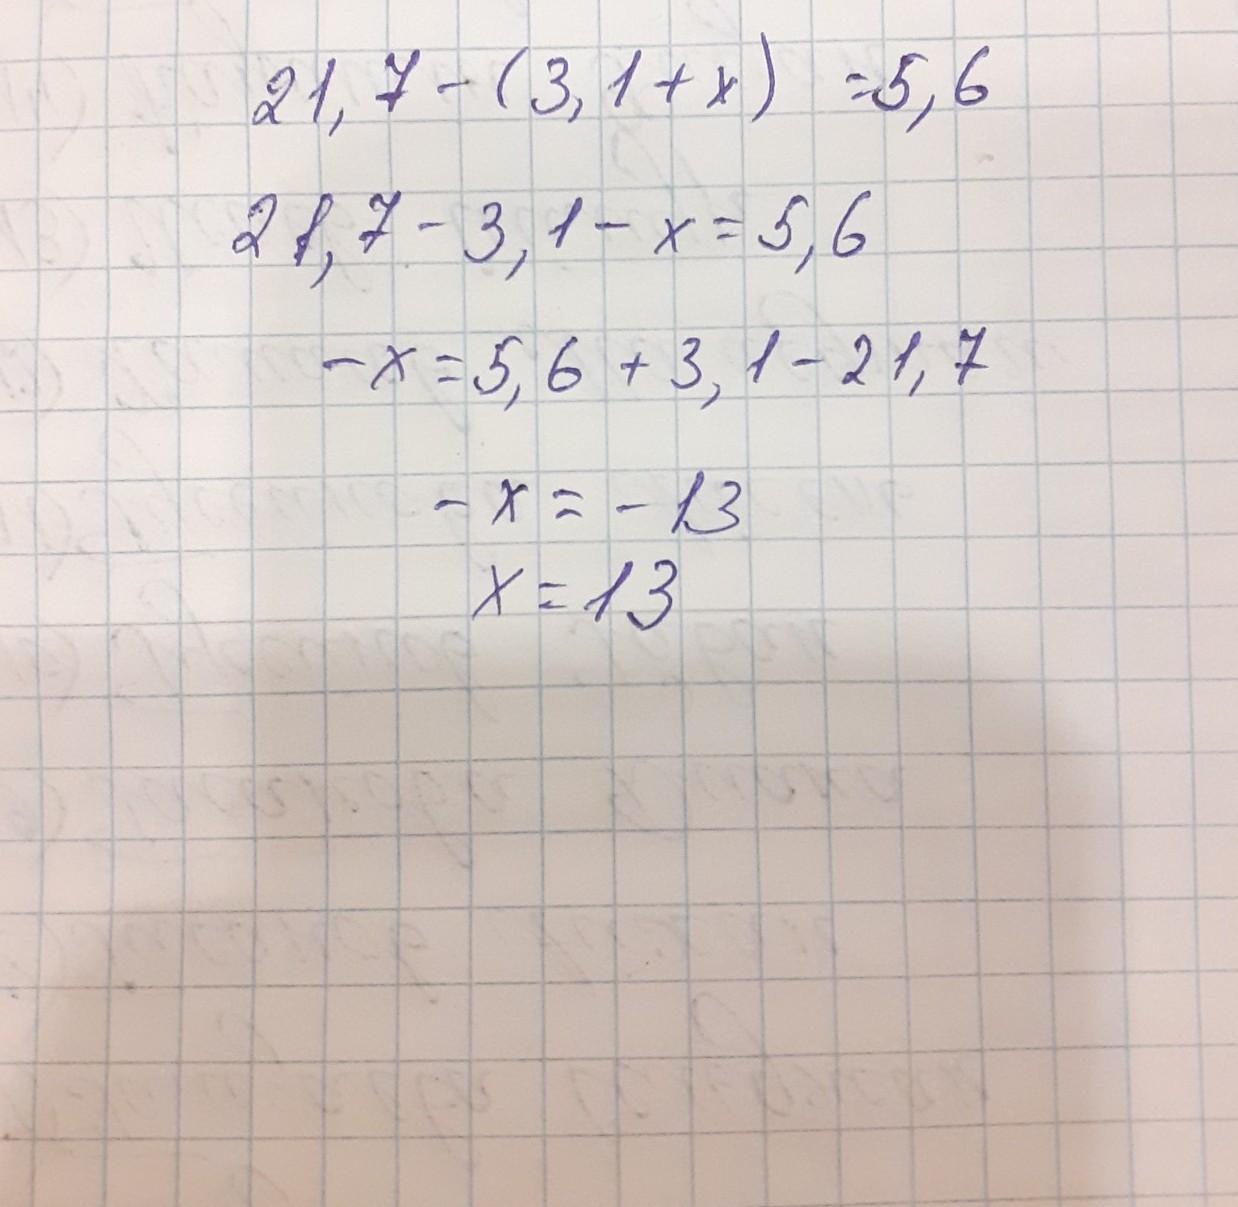 21,7-(3,1+x) =5,6
21,7-3,1-x=5,6
-x=5,6+3,1-21,7
-x=-13
x=13